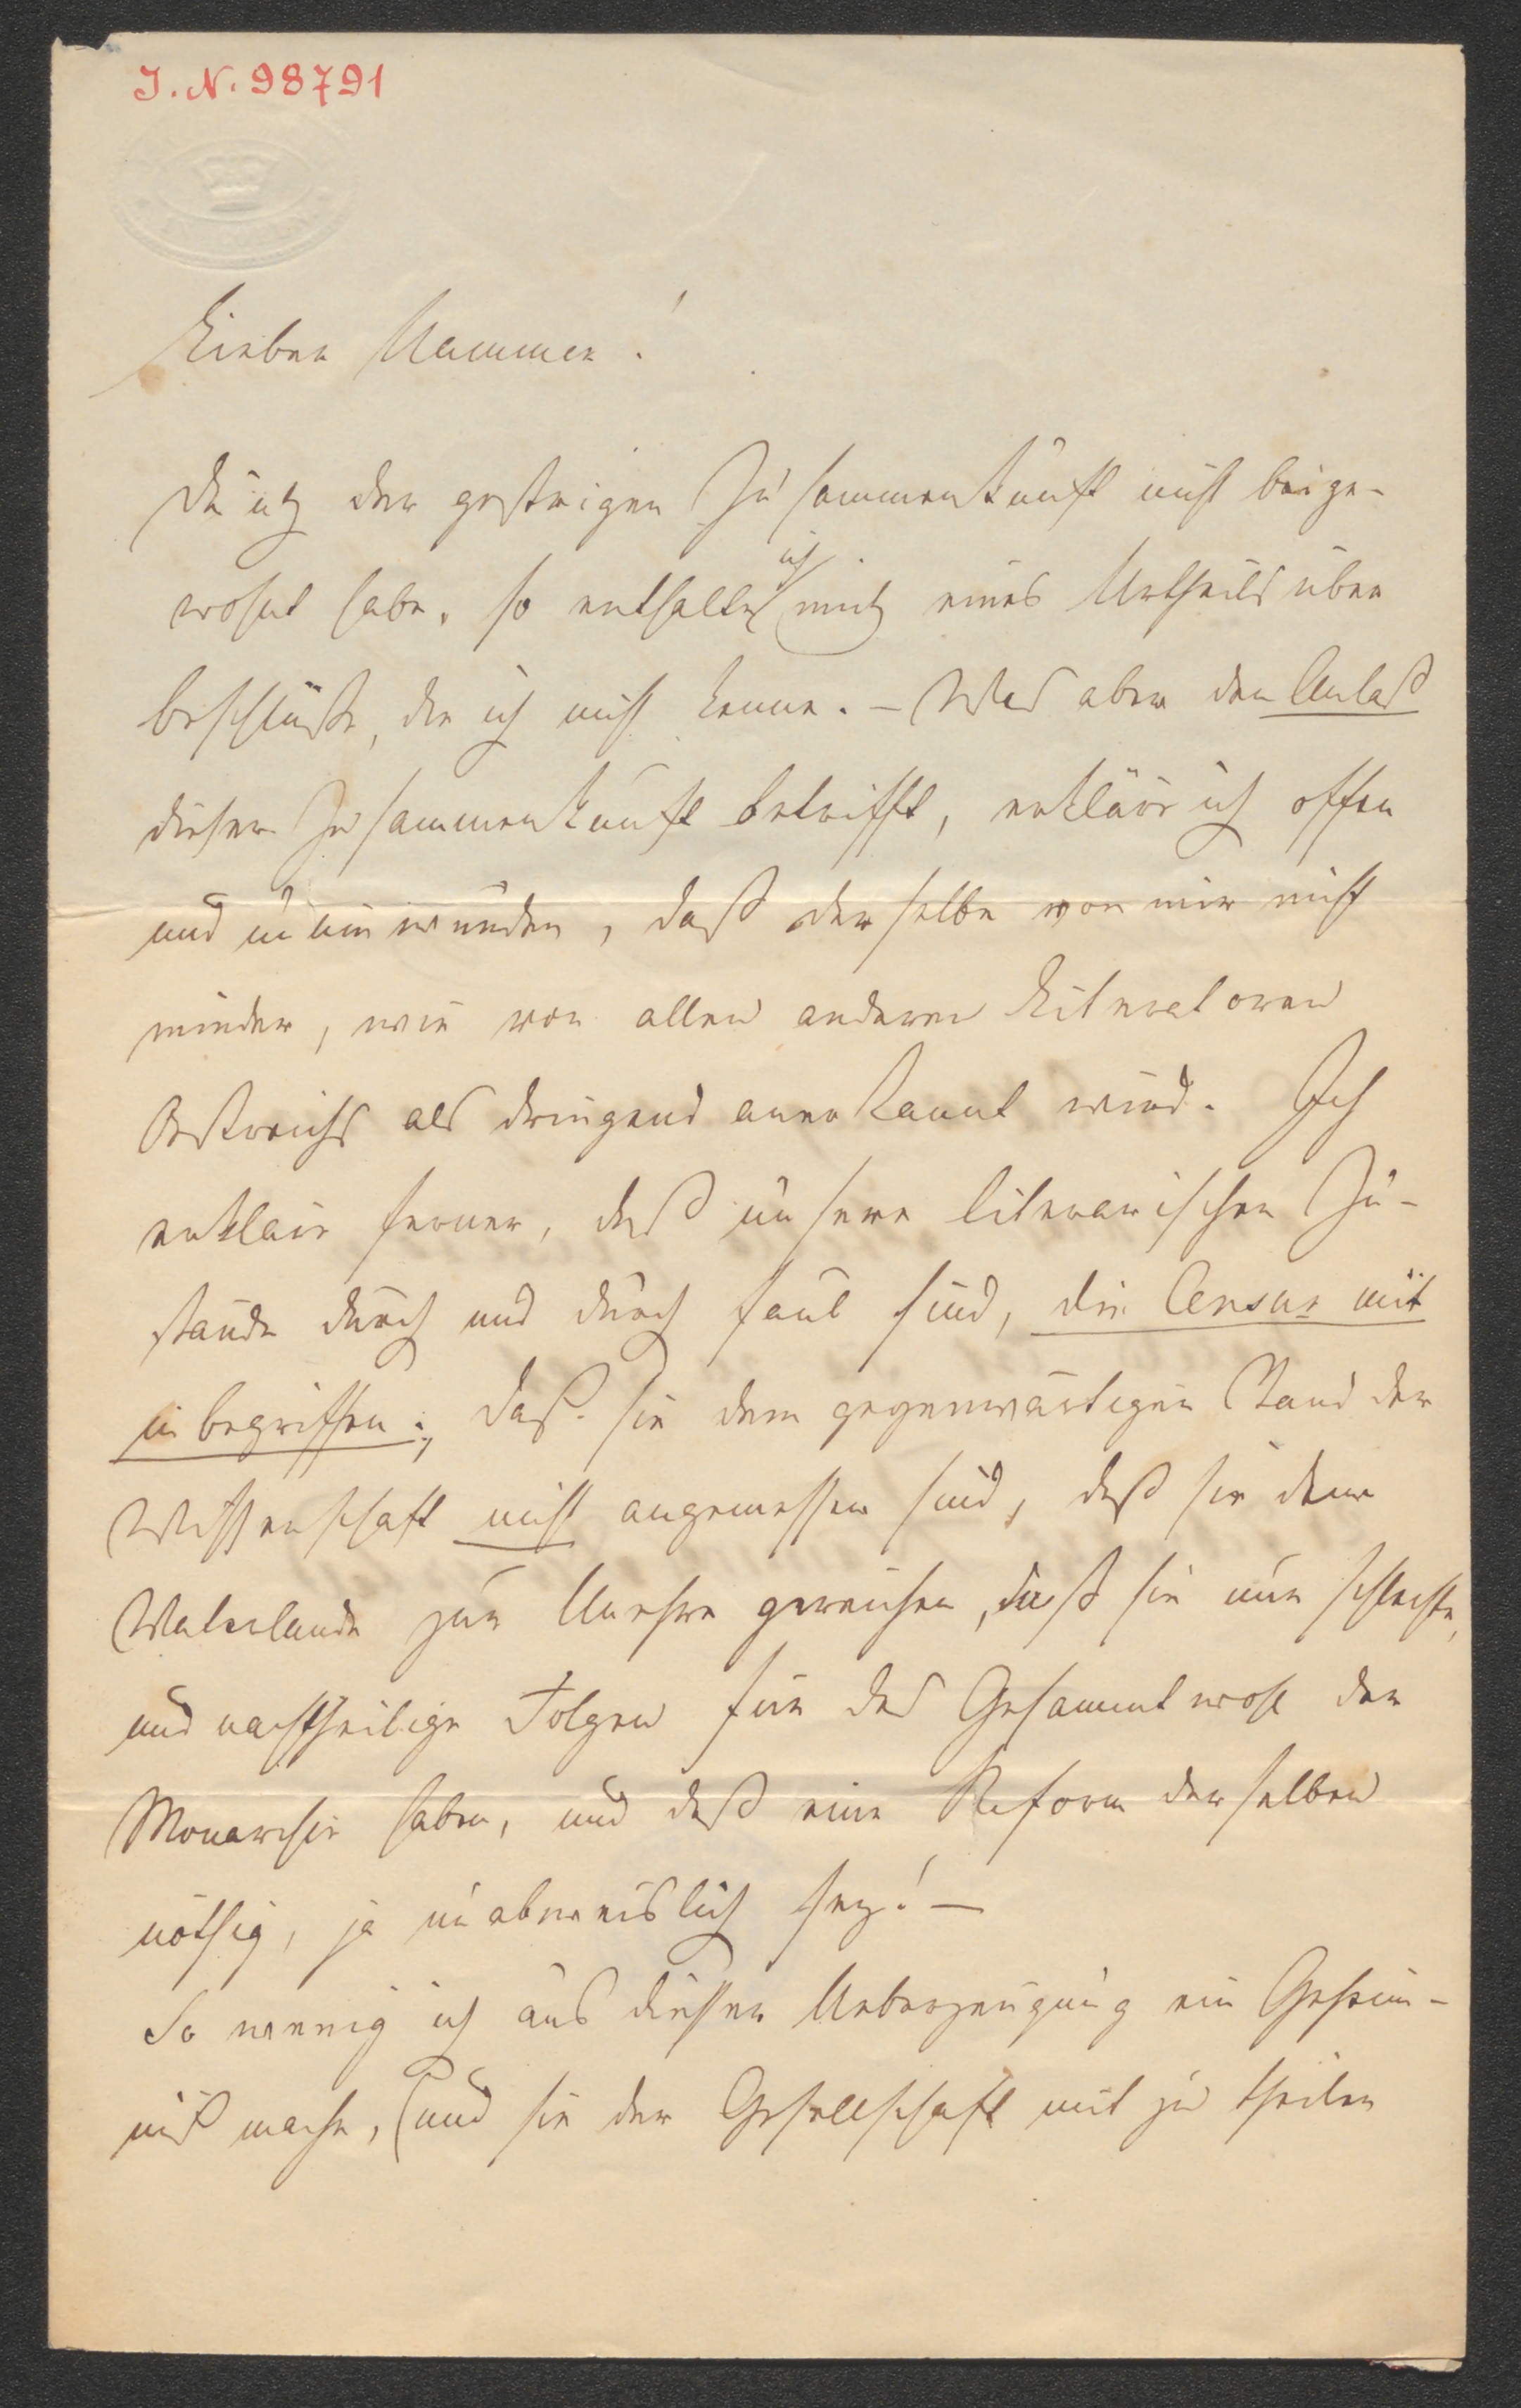 I.N. 98791
Lieber Hammer!
Da ich der gestrigen Zusammenkunft nicht beige-
wohnt habe, so enthalte ich mich eines Urtheils über
Beschlüße, die ich nicht kenne. – Was aber den Anlaß
dieser Zusammenkunft betrifft, erkläre ich offen
und unumwunden, daß derselbe von mir nicht
minder, wie von allen anderen Literatoren
Östreichs als dringend anerkannt wird. Ich
erkläre ferner, daß unsere literarischen Zu-
stände durch und durch faul sind, die Censur mit
inbegriffen; daß sie dem gegenwärtigen Stand der
Wissenschaft nicht angemessen sind, daß sie dem
Vaterlande zur Unehre gereichen, daß sie nur schlechte,
und nachtheilige Folgen für das Gesammtwohl der
Monarchie haben, und daß eine Reform derselben
nöthig, ja unabweislich sey! –
So wenig ich aus dieser Ueberzeugung ein Geheim-
niß mache, (und sie der Gesellschaft mit zu theilen